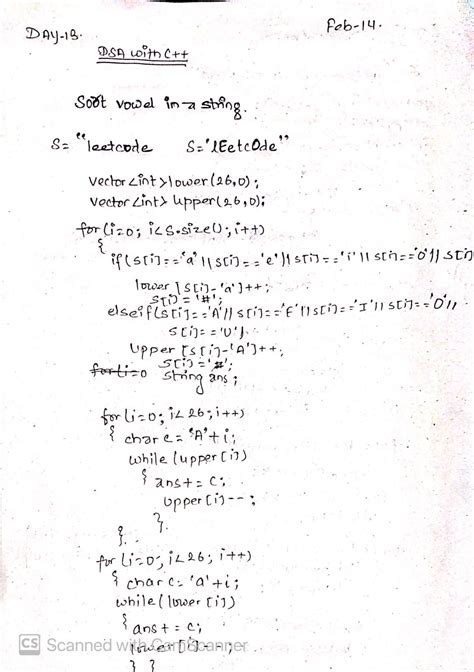 DAY-13.
Feb-14.
DSA with C++
Sort vowel in a string.
S= "leetcode S= 'lEetcOde"
vector<int>lower(26,0);
vector<int> upper(26,0);
for(i=0; i<S.size(); i++)
{
if(s[i]=='a' || s[i]=='e' || s[i]=='i' || s[i]=='o' || s[i]
lower [s[i]-'a']++;
s[i]='#';
elseif(s[i]=='A' || s[i]=='E' || s[i]=='I' || s[i]=='O' ||
s[i]=='U')
Upper [s[i]-'A']++;
s[i]='#';
for(i=0 string ans;
for(i=0; i<26; i++)
{ char c = 'A'+i;
while (upper [i])
{ ans+= c;
upper[i]--;
}
}.
for (i=0; i<26; i++)
{ char c= 'a'+i;
while( lower [i])
{ ans+= c;
lower[i]--;
} }
CS Scanned with CamScanner